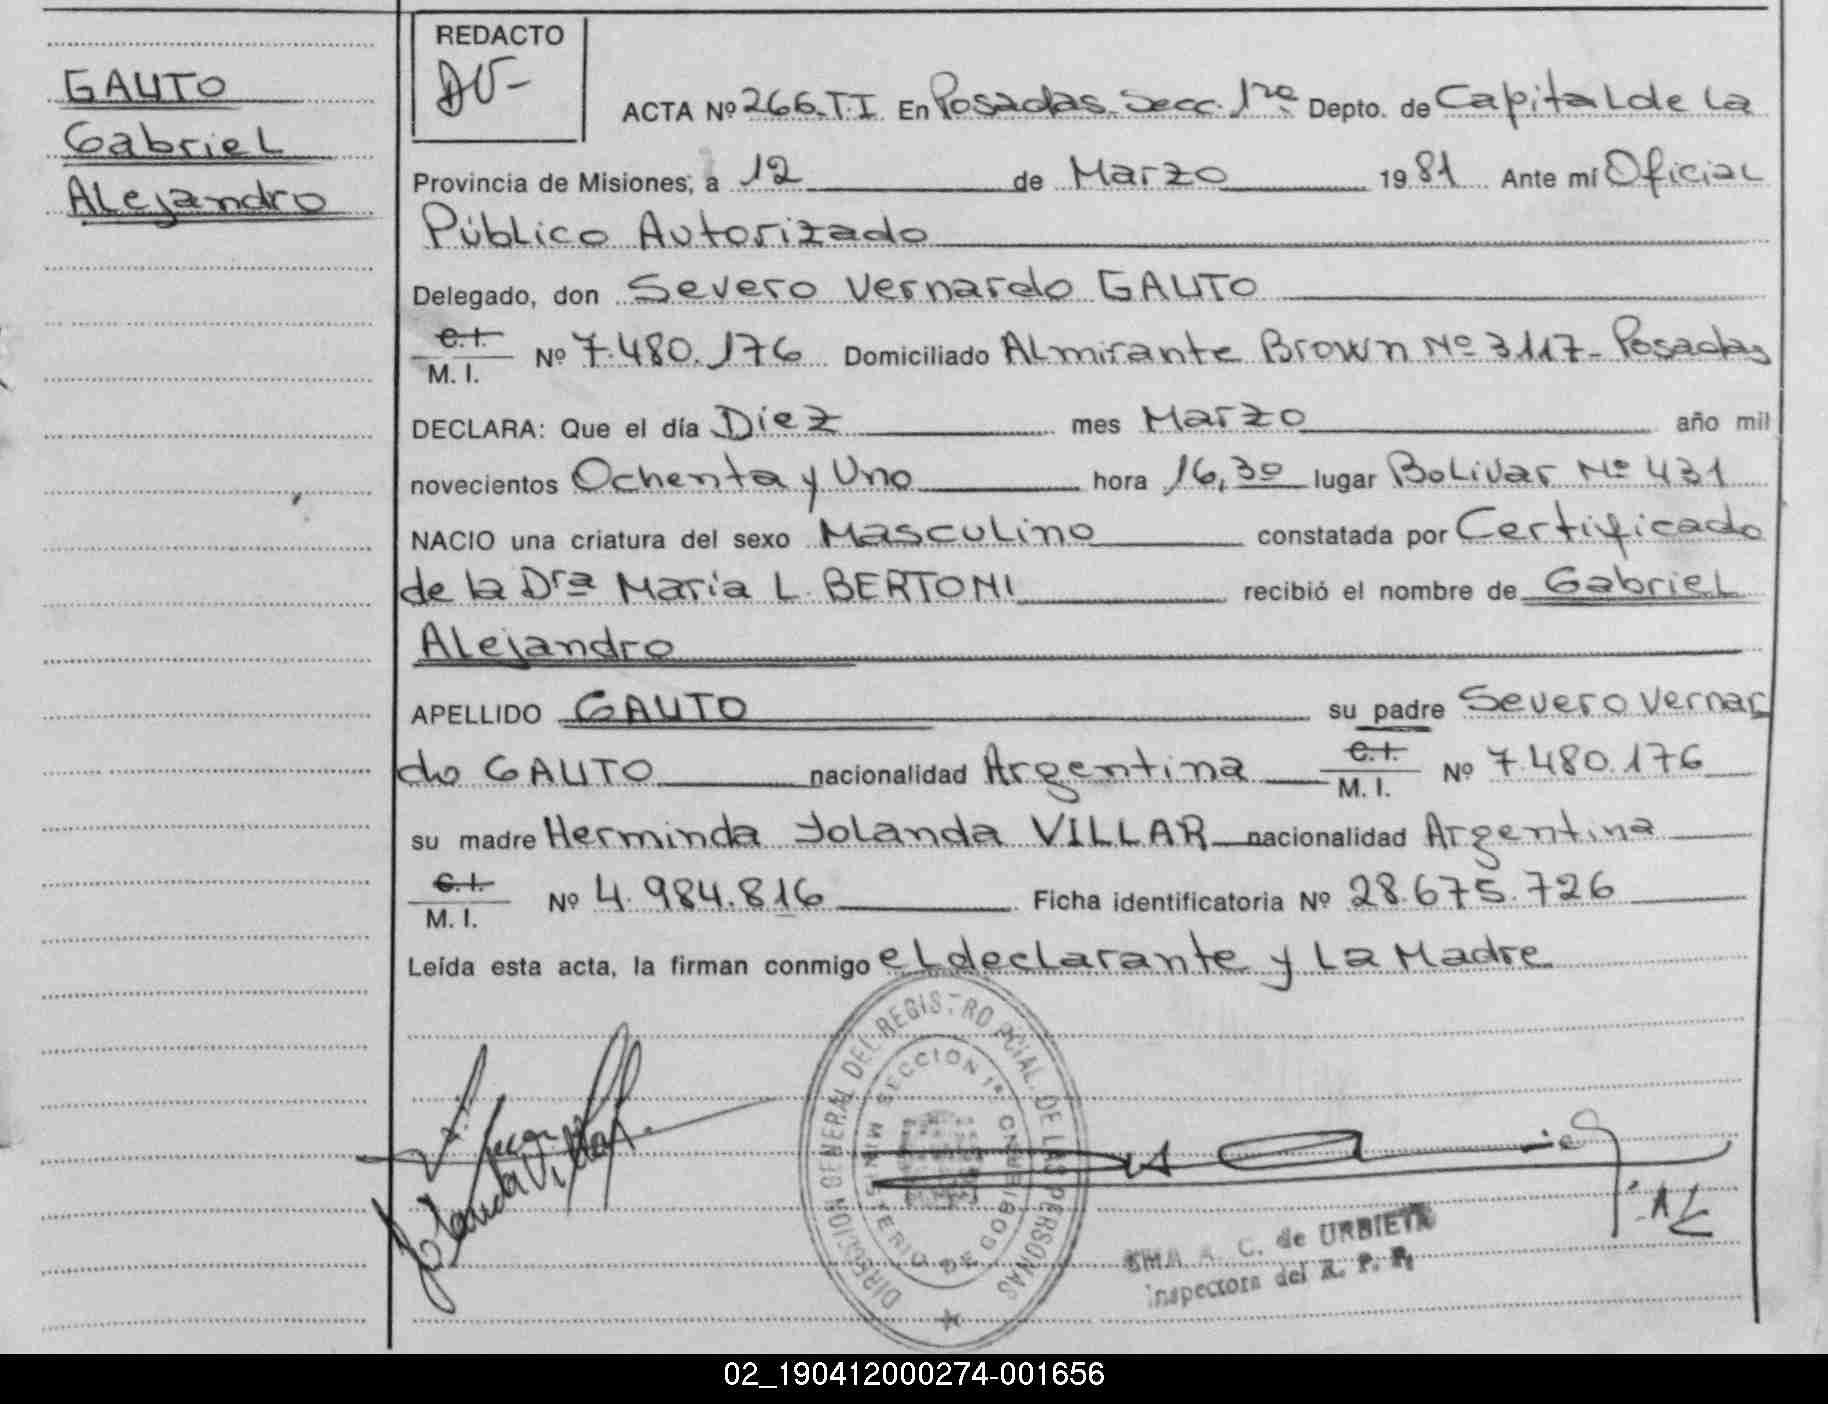 GAUTO
Gabriel
Alejandro
REDACTO
ACTA Nº 266. T. I. En Posadas. Secc. 1ra Depto. de Capital de la
Provincia de Misiones, a 12 de Marzo 1981 Ante mí Oficial
Público Autorizado
Delegado, don Severo Vernardo GAUTO
C.I.
M. I. Nº 7.480.176 Domiciliado Almirante Brown Nº 3117- Posadas
DECLARA: Que el día Diez mes Marzo año mil
novecientos Ochenta y Uno hora 16,30 lugar Bolivar Nº 431
NACIO una criatura del sexo Masculino constatada por Certificado
de la Dra Maria L. BERTONI recibió el nombre de Gabriel
Alejandro
APELLIDO GAUTO su padre Severo Vernar
do GAUTO nacionalidad Argentina C.I. M. I. Nº 7.480.176
su madre Herminda Yolanda VILLAR nacionalidad Argentina
C.I.
M. I. Nº 4.984.816 Ficha identificatoria Nº 28.675.726
Leída esta acta, la firman conmigo el declarante y la Madre
DIRECCION GENERAL DEL REGISTRO PCIAL. DE LAS PERSONAS
SECCION 1ª
MINISTERIO DE GOBIERNO
Yolanda Villar
A. C. de URBIETA
Inspectora del R. P. P.
02_190412000274-001656